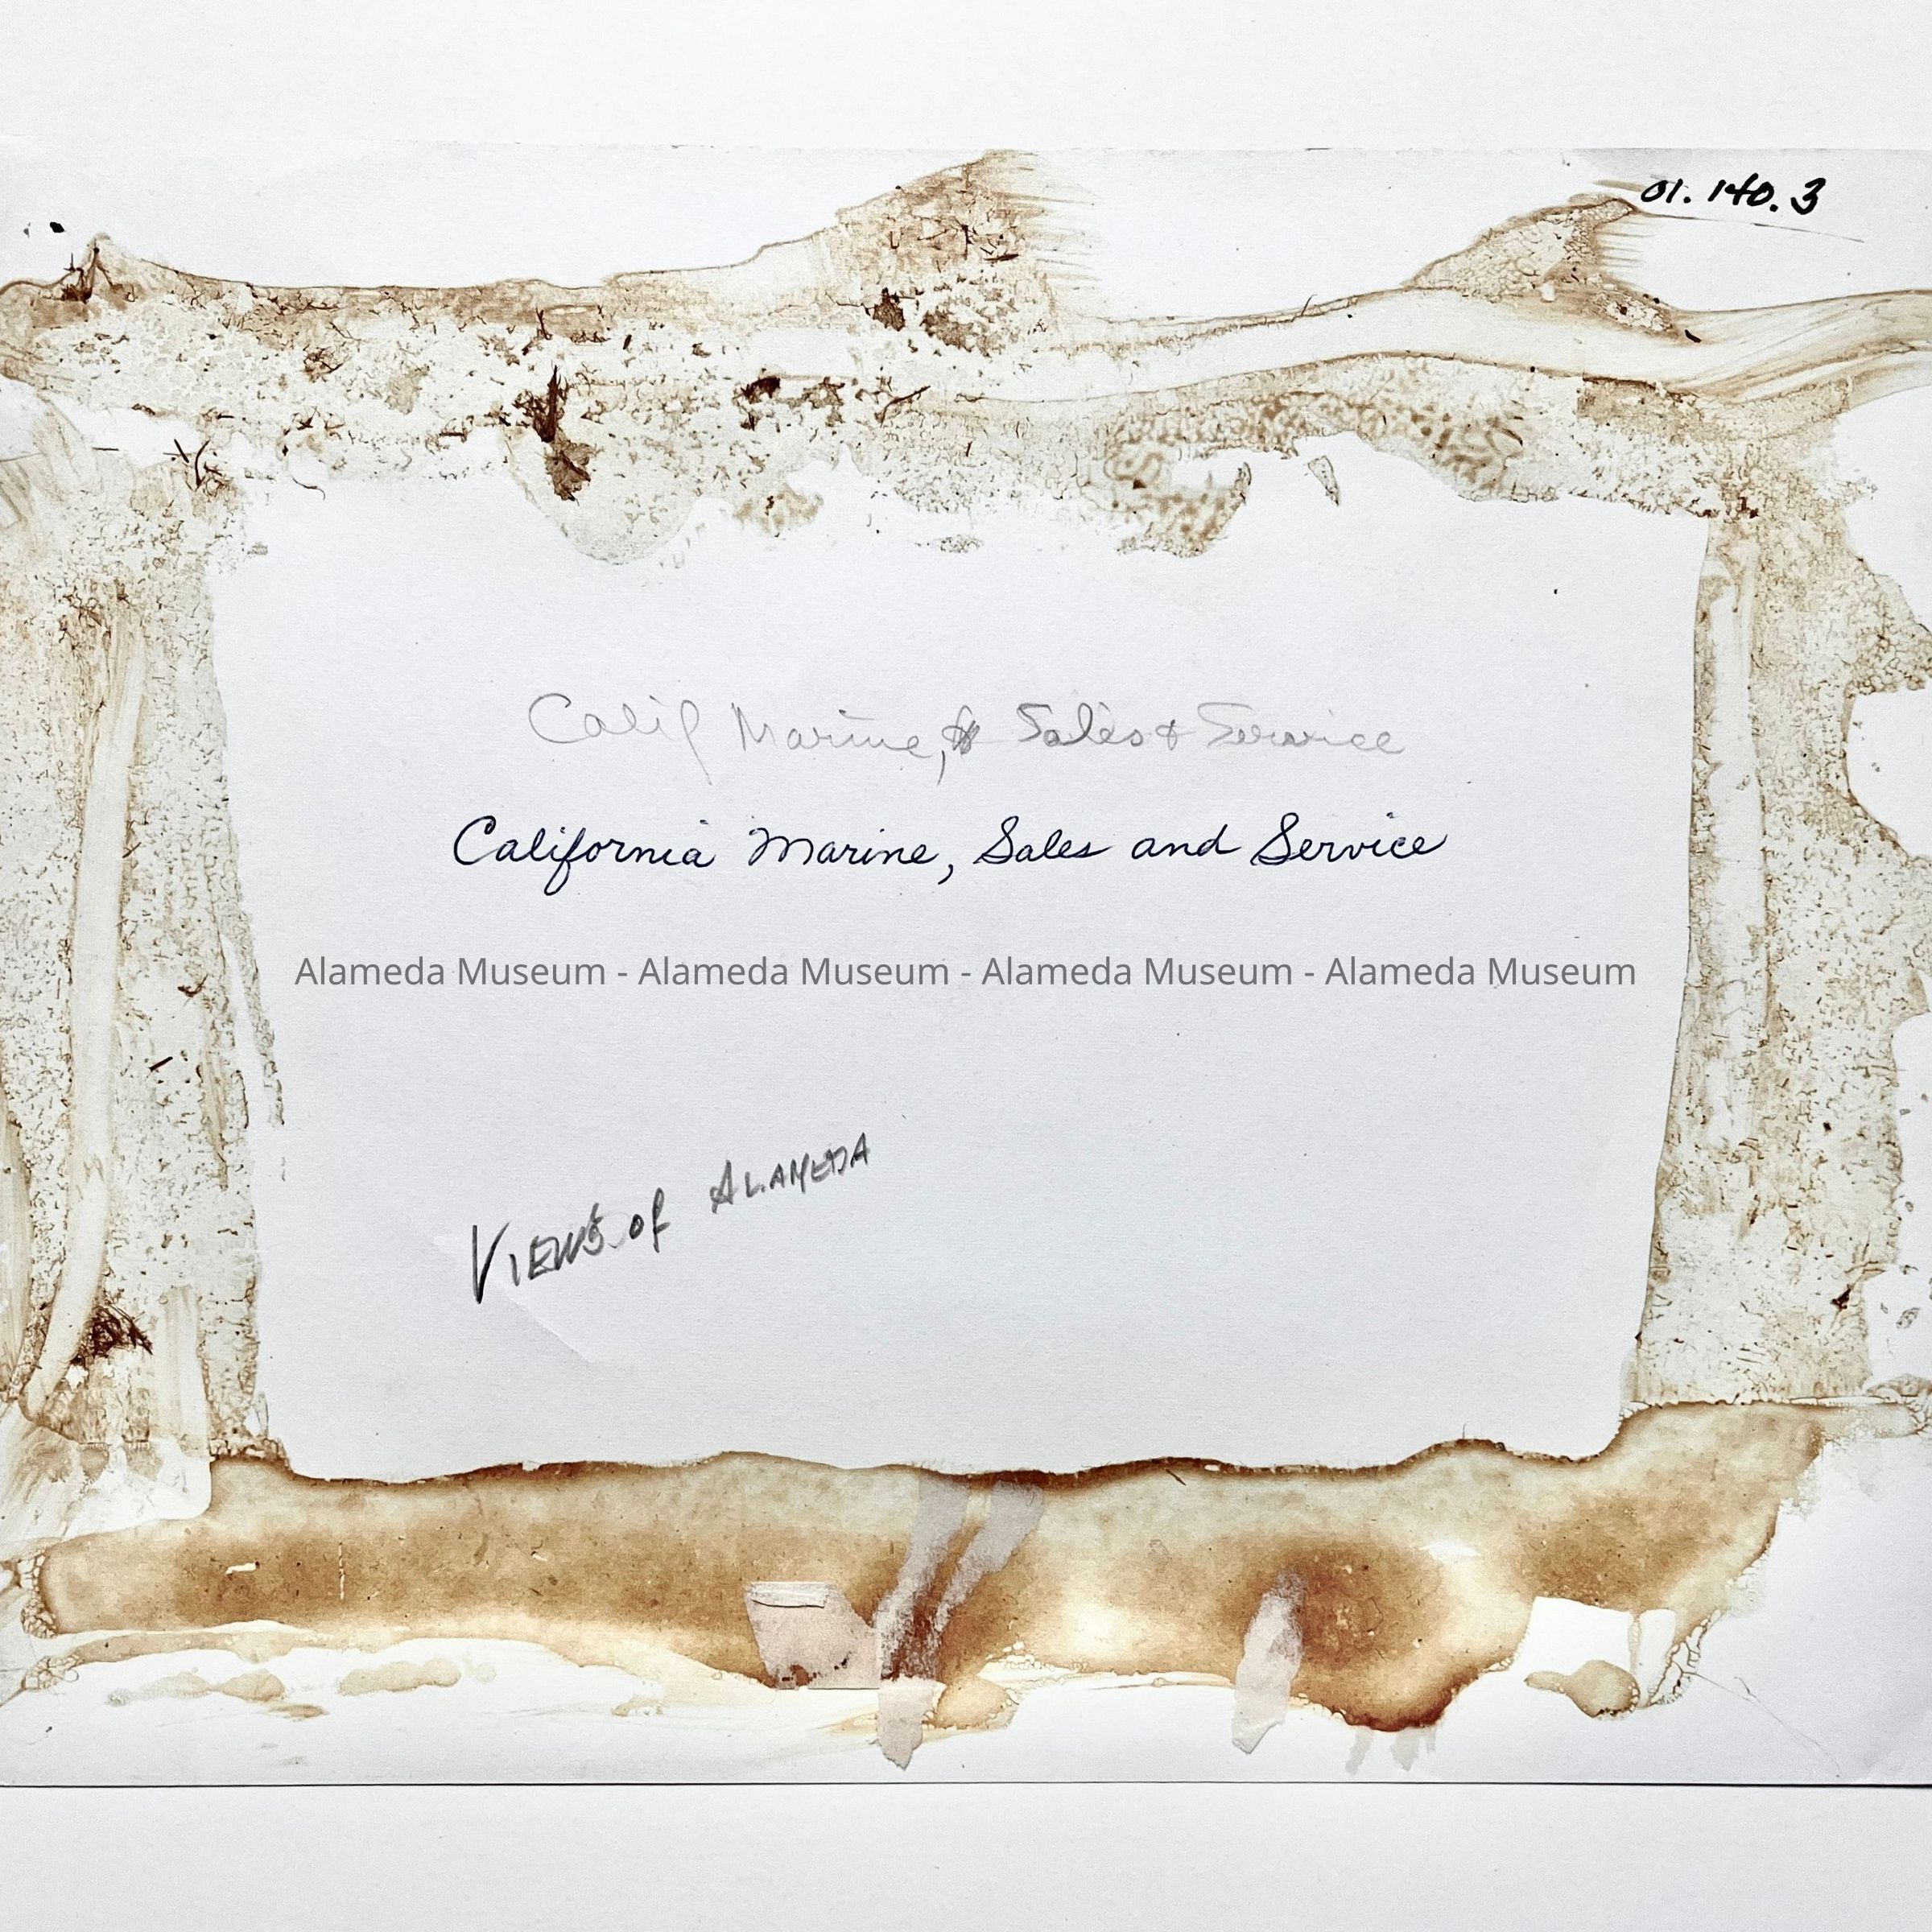 01.140.3
Calif Marine, & Sales & Service
California Marine, Sales and Service
Alameda Museum - Alameda Museum - Alameda Museum - Alameda Museum
VIEWS of ALAMEDA